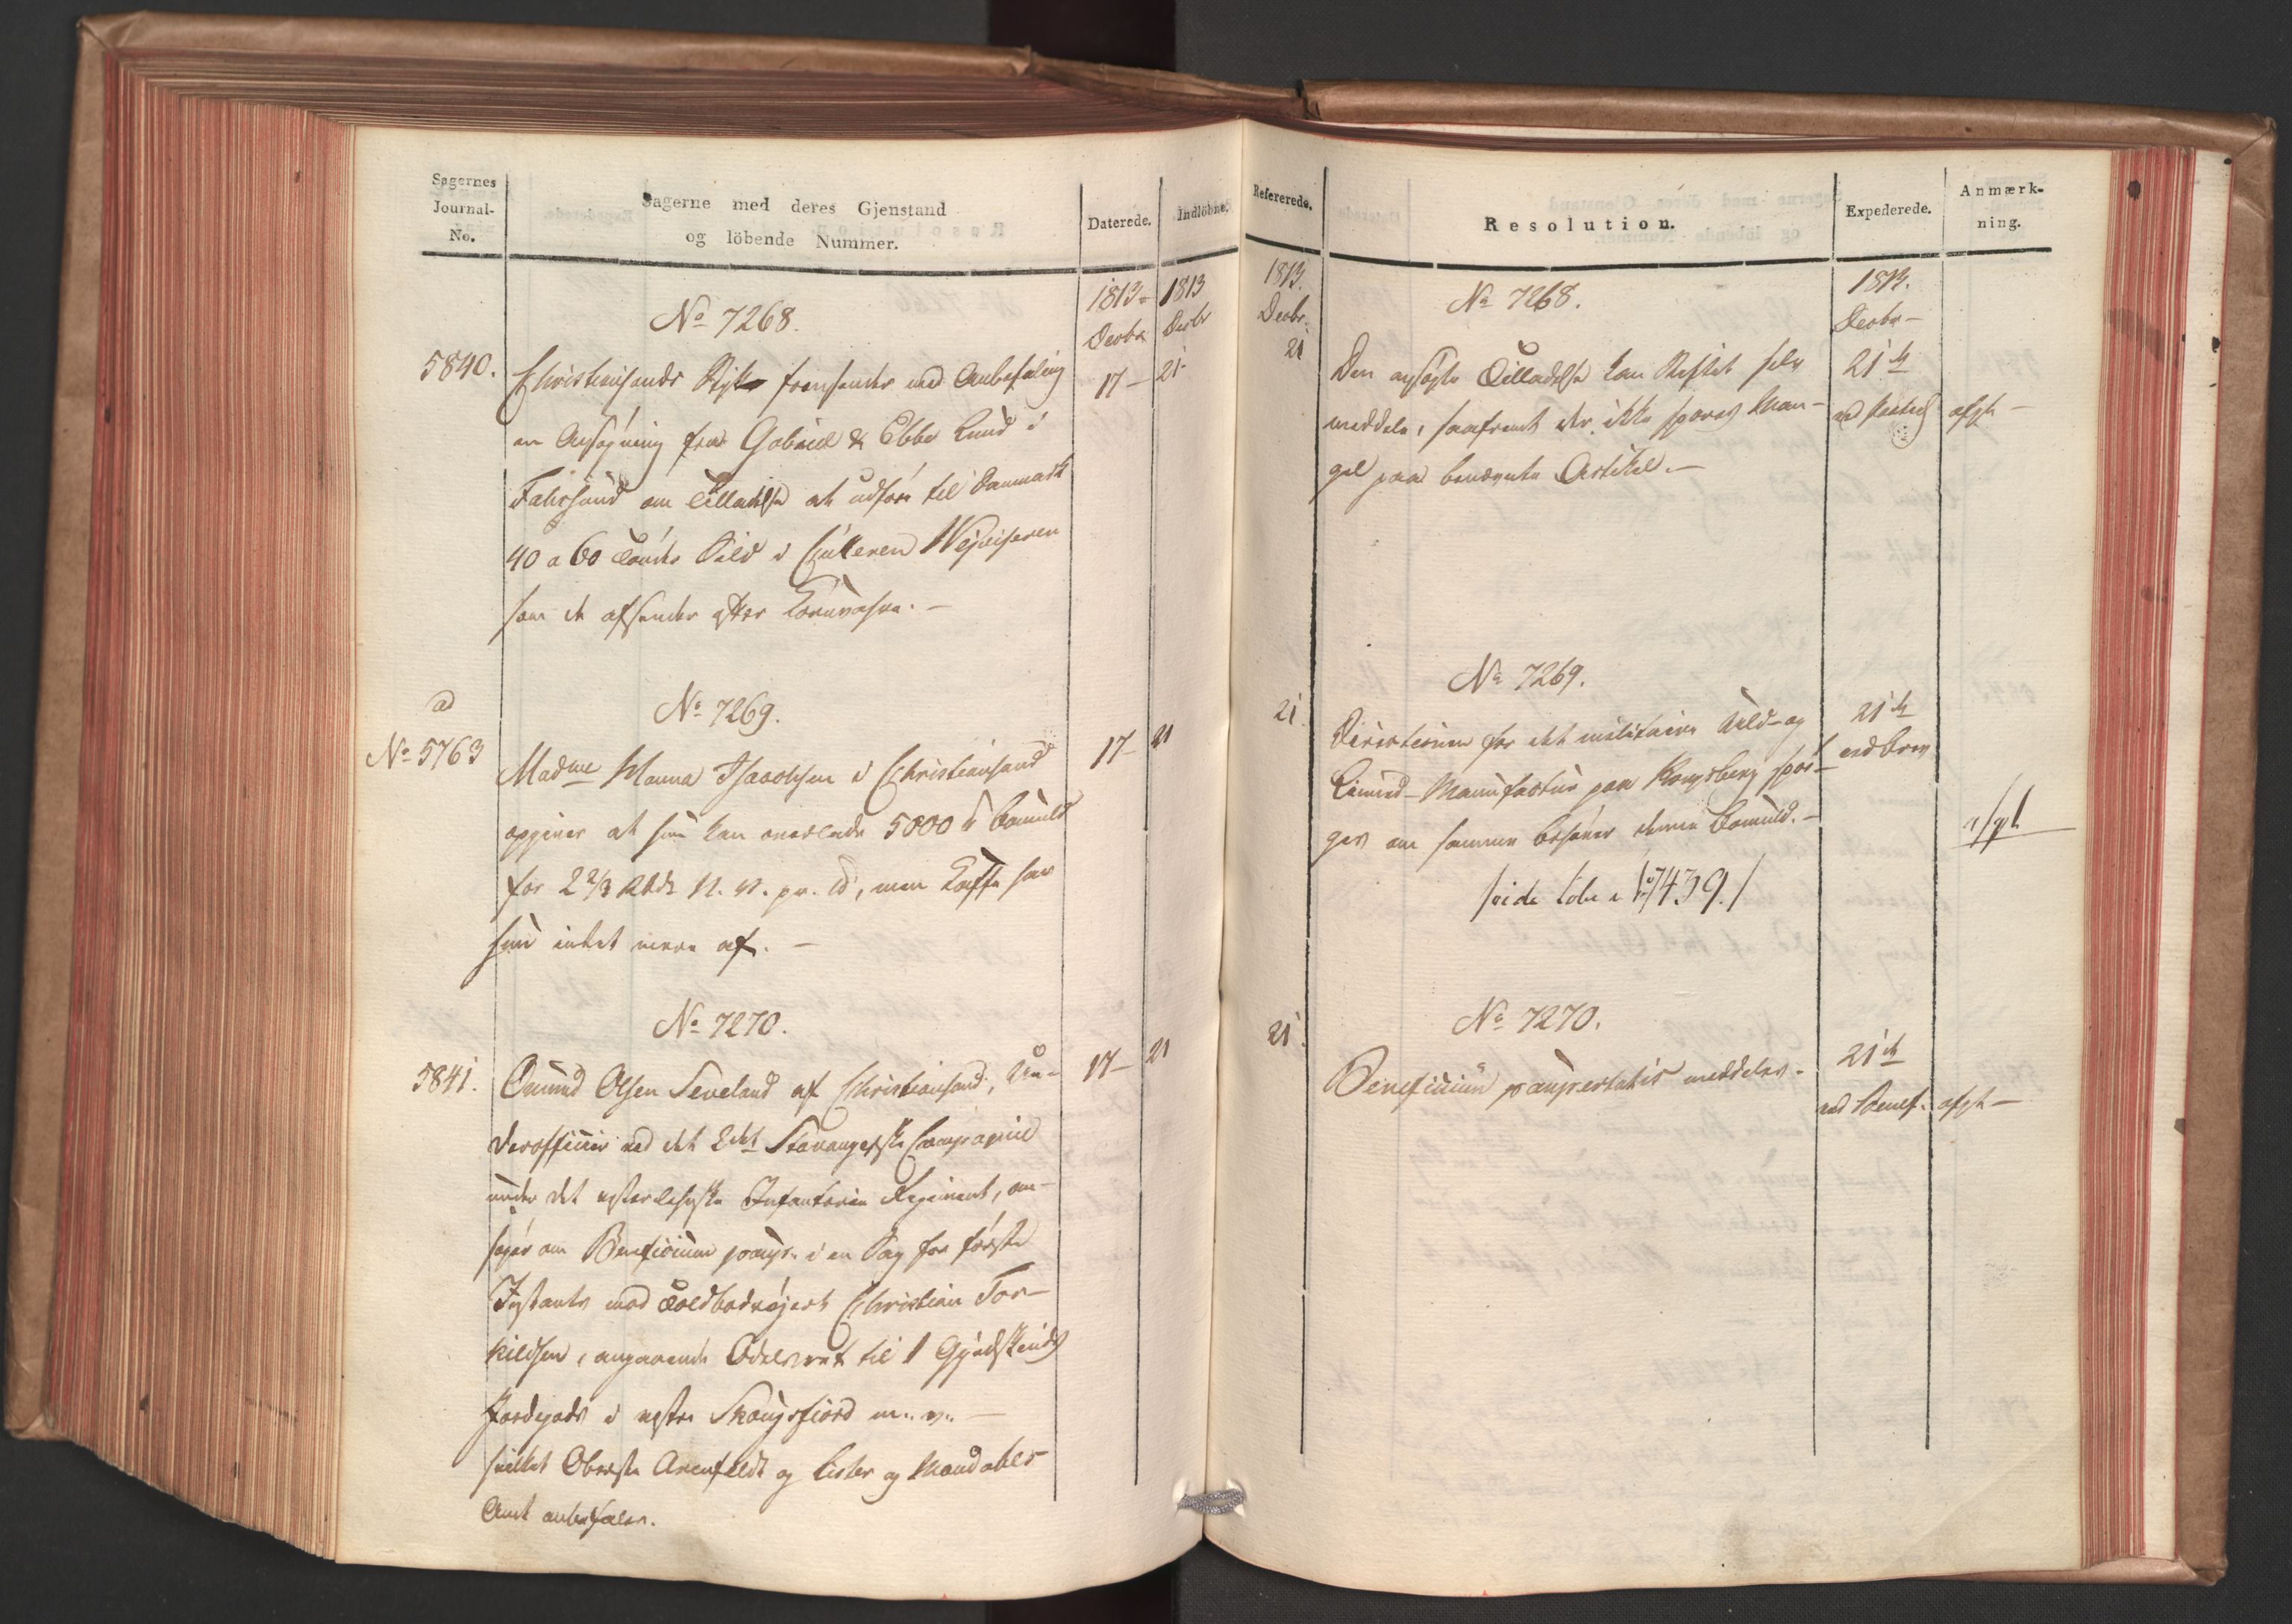 Sagernes
Journal-
No.
Sagerne med deres Gjenstand
og löbende Nummer.
Daterede.
Indlöbne.
1813
Decbr
1813
Decbr
No 7268.
5840.
Christiansands Stift fremsender med Anbefaling
17-
21
en Ansøgning fra Gabriel & Ebbe Lund i
Farsund om Tilladelse at udføre til Danmark
40 a 60 Tønder Sild i Cutteren Wejviseren
som de afsender efter Kornvahre.-
ad
No 5763
No 7269.
Madme Manna Isaachsen i Christiansand
17-
21
opgiver at hun kan overlade 5000 ℔ Bomuld
for 2 2/3 Rbdr N. V. pr. ℔, men Kaffe har
hun intet mere af.-
No 7270.
5841.
Omund Olsen Seveland af Christiansand, Un-
17-
21
derofficier ved det 2det Stavangerske Compagnie
under det vesterlehnske Infanterie Regiment, an-
søger om Beneficium paup. i en Sag for første
Instants mod Toldbetjent Christian Tor-
kildsen, angaaende Odelsret til 1 Gjedskinds
Jordegods i vestre Skougsfiord m. v.-
hvilket Oberste Arenfeldt og Lister og Mandahls
Amt anbefaler.
Refererede.
Resolution.
Expederede.
Anmærk-
ning.
1813.
Decbr.
21
1813.
Decbr-
No 7268.
Den ansøgte Tilladelse kan Stiftet selv
21de
meddele, saafremt der ikke spores Man-
afgt-
gel paa benævnte Artikel.-
No 7269.
21
Directionen for det militaire Uld- og
21de
Linned-Manufactur paa Kongsberg spør-
ved Brev
ges om samme behøver denne Bomuld.-
afgt
/vide Lobe No 7439./
No 7270.
21
Beneficium paupertatis meddeles.
21de
ved Benef.
afgt-